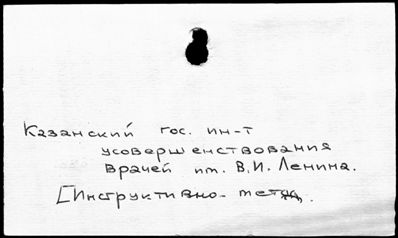 Казанский гос. ин-т
усовершенствования
врачей им. В.И. Ленина.
[Инструктивно-